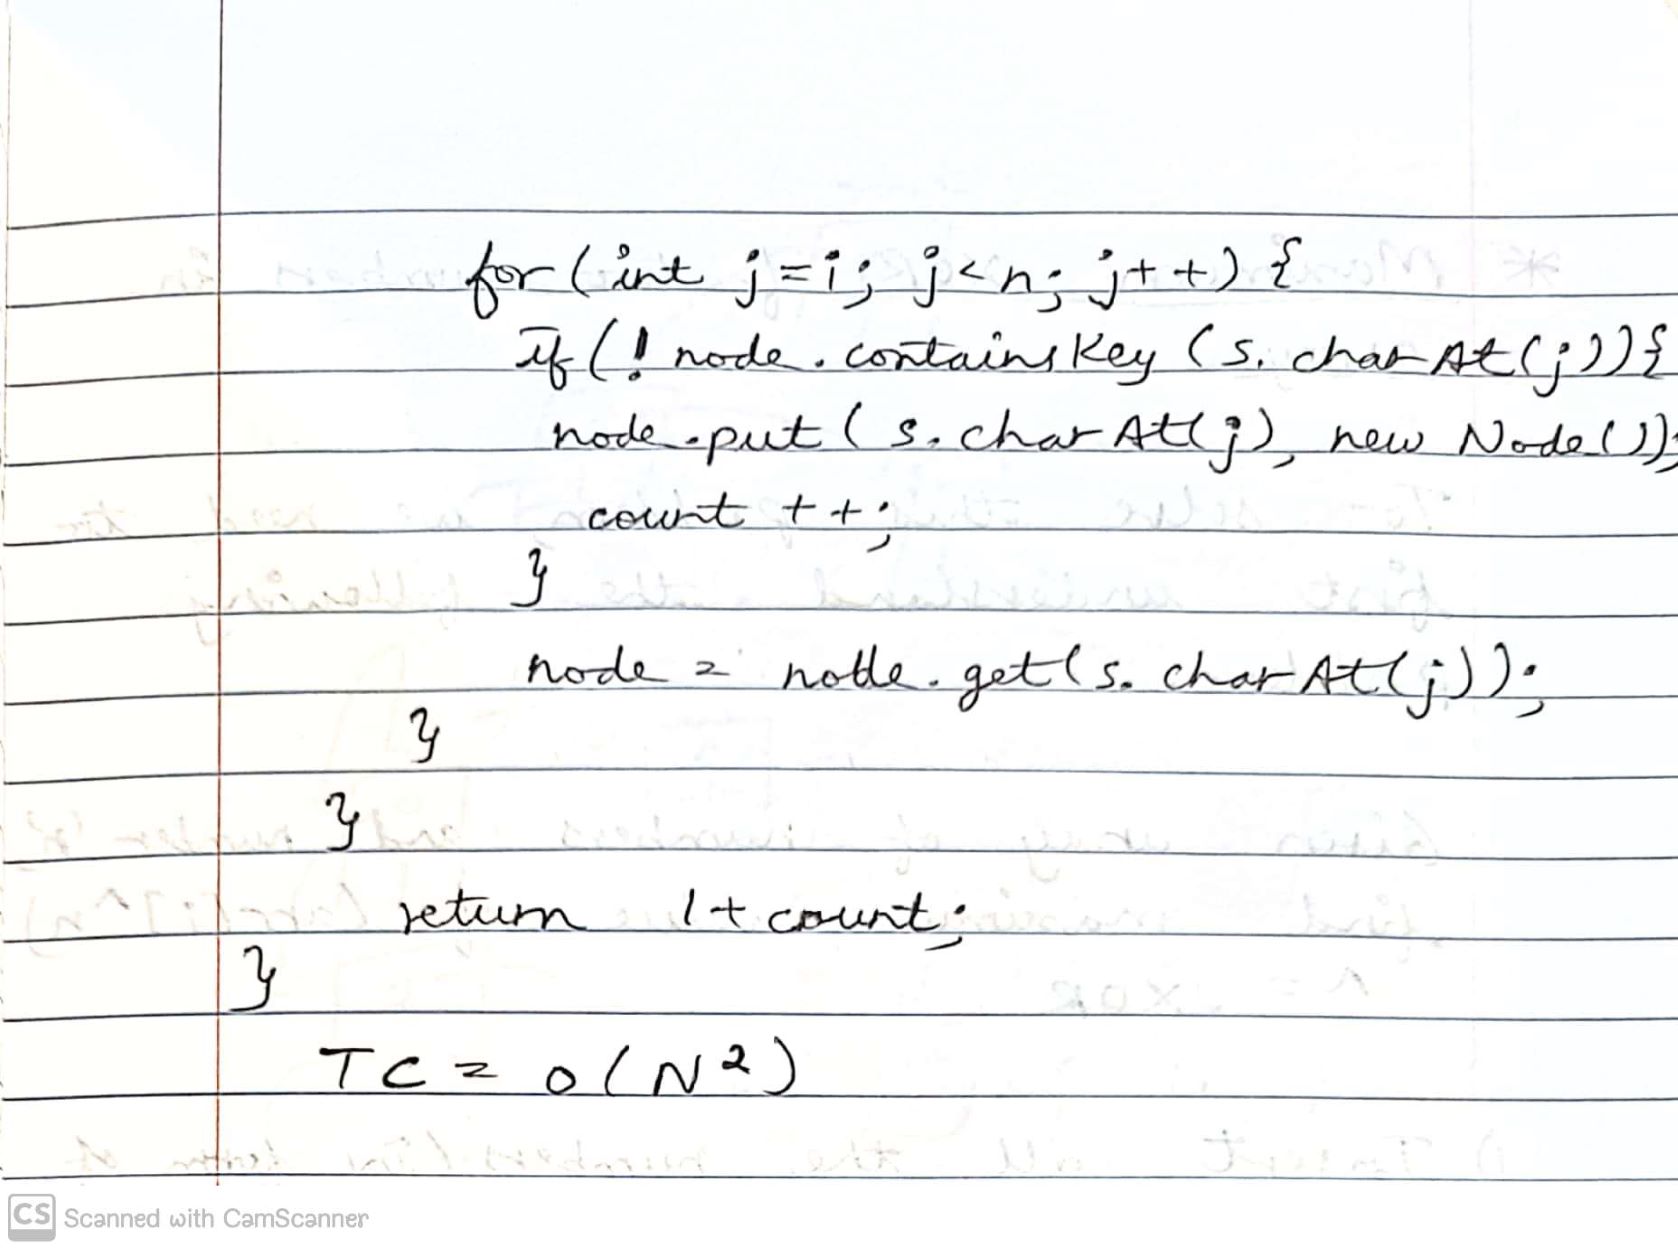 for (int j = i; j < n; j++) {
if (! node.containsKey (s.charAt(j)) {
node.put (s.charAt(j), new Node());
count ++;
}
node = node.get(s.charAt(j));
}
}
return 1 + count;
}
TC = O(N²)
CS Scanned with CamScanner